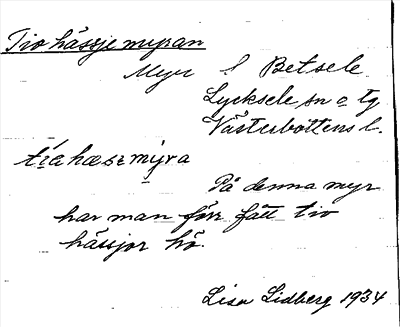 Tio hässje myran
Myr i Betsele
Lycksele sn o tg
Västerbottens l.
tía hæsɛ mỳra
På denna myr
har man förr fått tio
hässjor hö.
Lisa Lidberg 1934